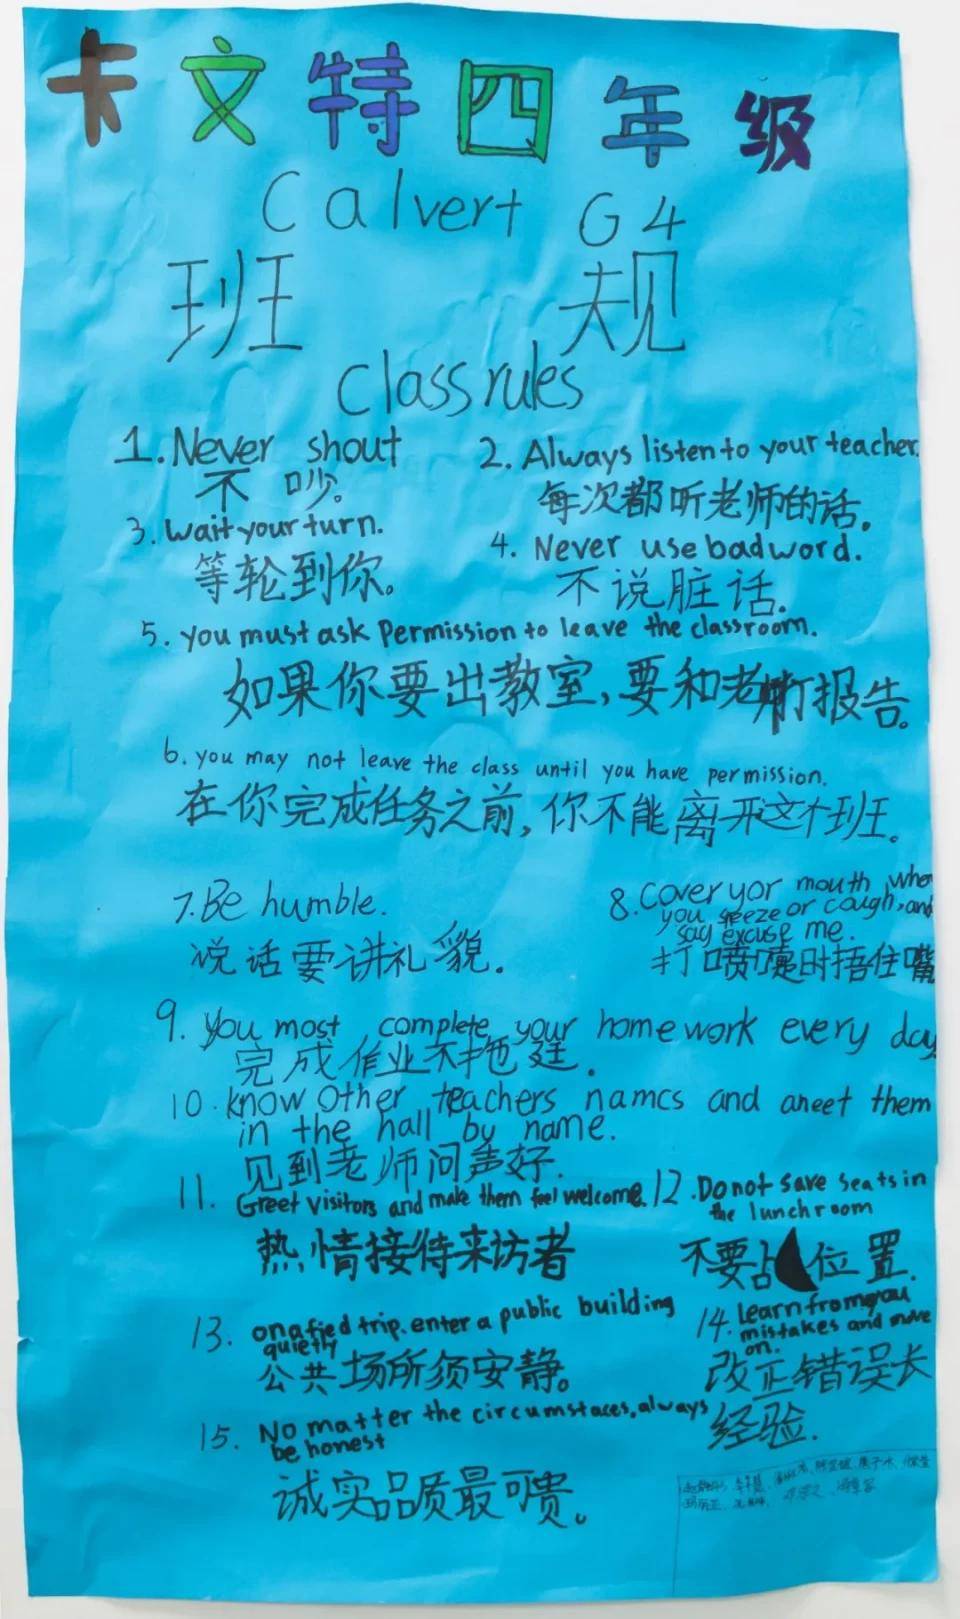 卡文特四年级
Calvert G4
班规
Class rules
1. Never shout
不吵。
2. Always listen to your teacher.
每次都听老师的话。
3. wait your turn.
等轮到你。
4. Never use bad word.
不说脏话.
5. you must ask Permission to leave the classroom.
如果你要出教室,要和老师报告。
6. you may not leave the class until you have permission.
在你完成任务之前,你不能离开这个班。
7. Be humble.
说话要讲礼貌.
8. Cover yor mouth when
you speeze or cough, and
say excuse me.
打喷嚏时捂住嘴
9. You most complete your homework every day.
完成作业不拖延.
10. know other teachers names and aneet them
in the hall by name.
见到老师问声好.
11. Greet visitors and make them feel welcome.
热情接待来访者
12. Do not save seats in
the lunchroom
不要占位置.
13. on a fied trip. enter a public building
quietly
公共场所须安静。
14. Learn from you
mistakes and move
on.
改正错误长
经验.
15. No matter the circumstaces, always
be honest
诚实品质最可贵。